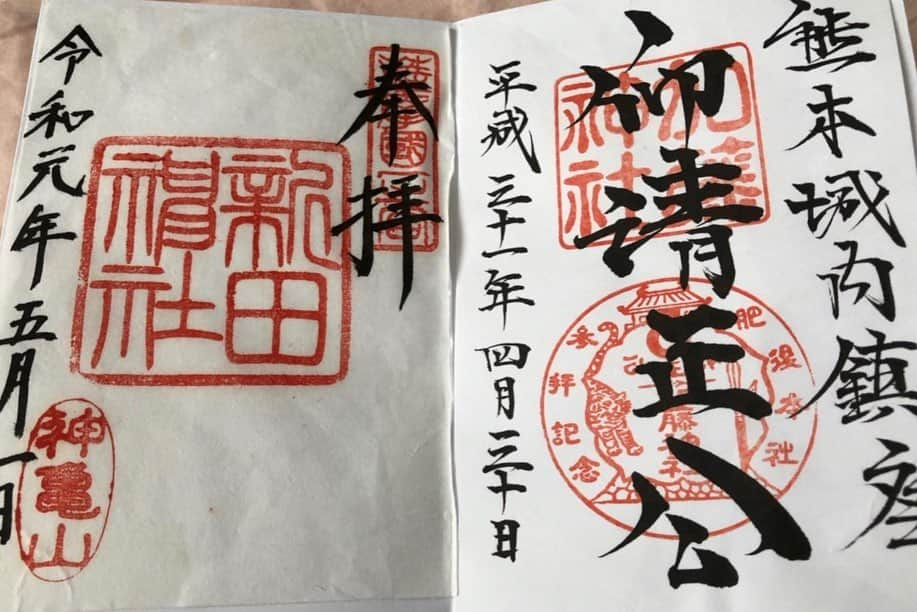 熊本城内鎮座
仰清正公
平成三十一年四月三十日
加藤
神社
肥後本社
参拝記念
奉拝
新田
神社
令和元年五月一日
神亀山